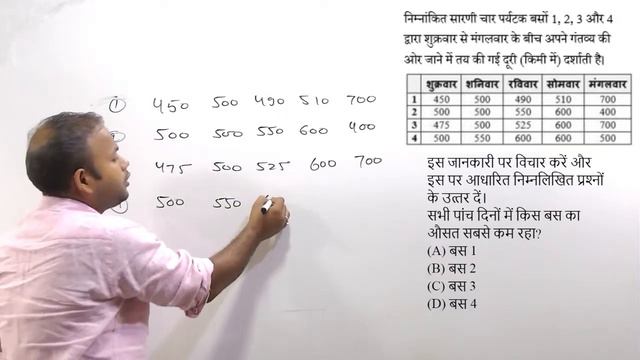 निम्नांकित सारणी चार पर्यटक बसों 1, 2, 3 और 4
द्वारा शुक्रवार से मंगलवार के बीच अपने गंतव्य की
ओर जाने में तय की गई दूरी (किमी में) दर्शाती है।
शुक्रवार शनिवार रविवार सोमवार मंगलवार
1 450 500 490 510 700
2 500 500 550 600 400
3 475 500 525 600 700
4 500 550 600 600 500
इस जानकारी पर विचार करें और
इस पर आधारित निम्नलिखित प्रश्नों
के उत्तर दें।
सभी पांच दिनों में किस बस का
औसत सबसे कम रहा?
(A) बस 1
(B) बस 2
(C) बस 3
(D) बस 4
1 450 500 490 510 700
500 500 550 600 400
475 500 525 600 700
500 550